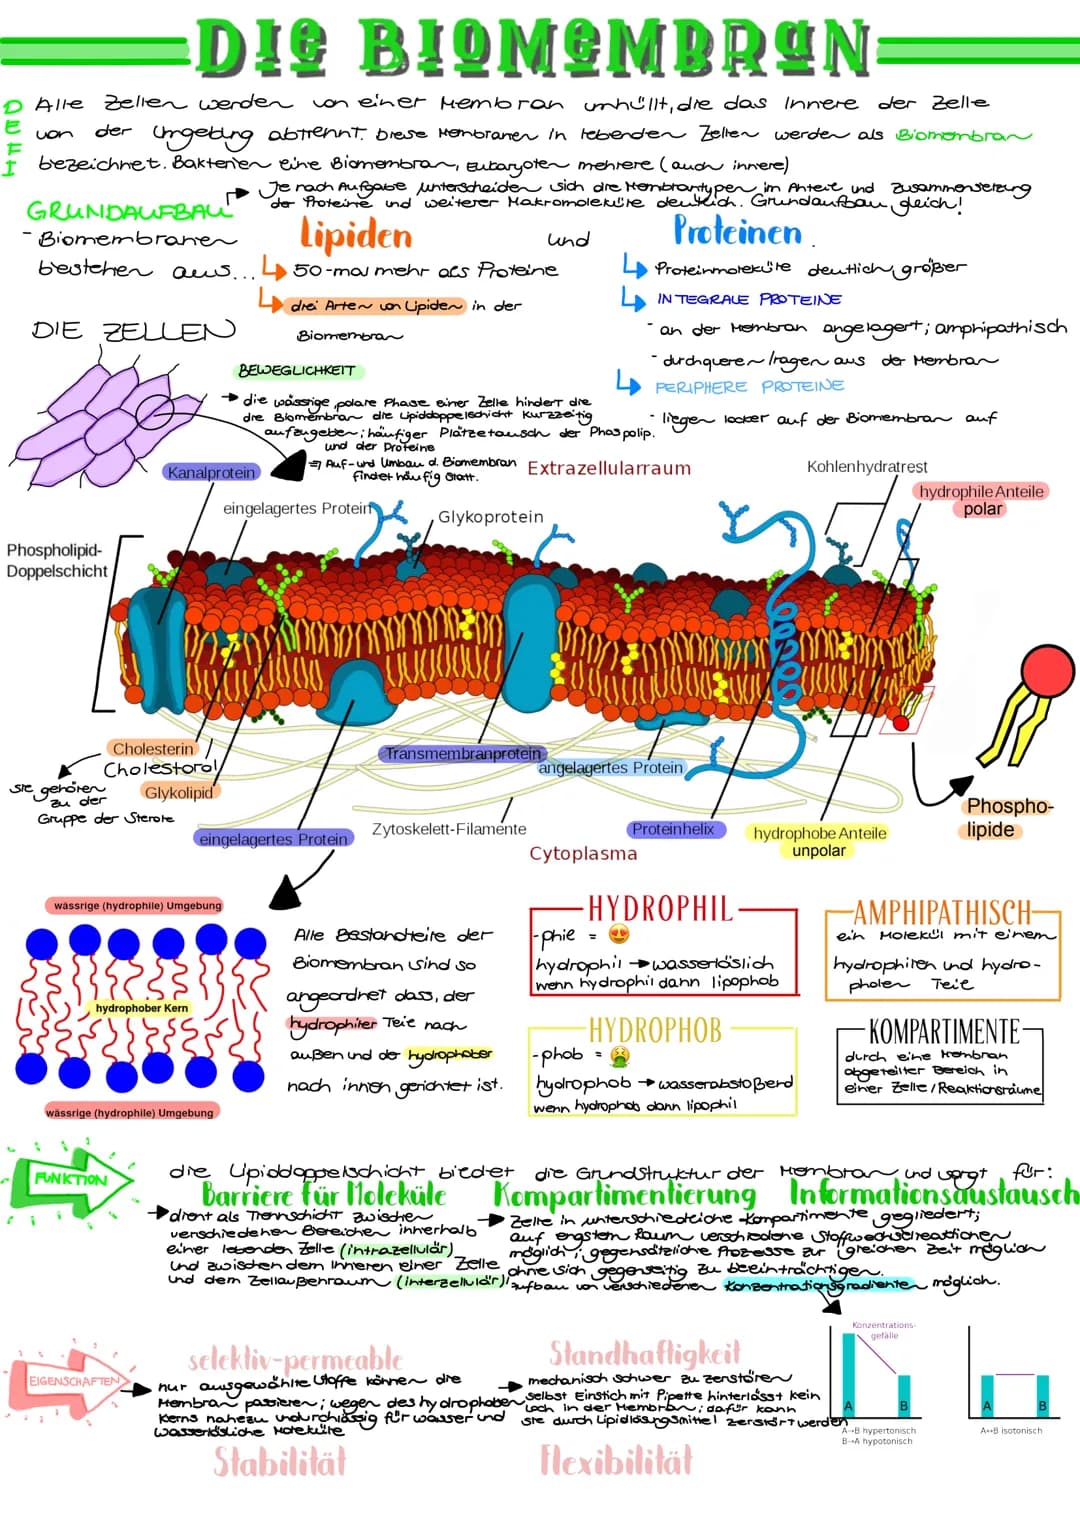 DIE BIOMEMBRAN
DEFI
Alle Zellen werden von einer Membran umhüllt, die das Innere der Zelle
von der Umgebung abtrennt. Diese Membranen in lebenden Zellen werden als Biomembran
bezeichnet. Bakterien eine Biomembran, Eukaryoten mehrere (auch innere)
Je nach Aufgabe unterscheiden sich die Membrantypen im Anteil und Zusammensetzung
der Proteine und weiterer Makromoleküle deutlich. Grundaufbau gleich!
GRUNDAUFBAU
- Biomembranen
bestehen aus...
Lipiden
und
Proteinen.
50-mal mehr als Proteine
drei Arten von Lipiden in der
Biomembran
Proteinmoleküle deutlich größer
INTEGRALE PROTEINE
- an der Membran angelagert; amphipathisch
- durchqueren/ragen aus der Membran
PERIPHERE PROTEINE
- liegen locker auf der Biomembran auf
DIE ZELLEN
BEWEGLICHKEIT
→ die wässrige, polare Phase einer Zelle hindert die
die Biomembran die Lipiddoppelschicht kurzzeitig
aufzugeben; häufiger Plätzetausch der Phospolip.
und der Proteine
⇒ Auf- und Umbau d. Biomembran
findet häufig statt.
Extrazellularraum
Kohlenhydratrest
Kanalprotein
hydrophile Anteile
polar
eingelagertes Protein
Glykoprotein
Phospholipid-
Doppelschicht
Cholesterin
Cholesterol
sie gehören
zu der
Gruppe der Sterole
Glykolipid
Transmembranprotein
angelagertes Protein
eingelagertes Protein
Zytoskelett-Filamente
Proteinhelix
hydrophobe Anteile
unpolar
Cytoplasma
Phospho-
lipide
wässrige (hydrophile) Umgebung
hydrophober Kern
wässrige (hydrophile) Umgebung
Alle Bestandteile der
Biomembran sind so
angeordnet dass, der
hydrophiler Teil nach
außen und der hydrophober
nach innen gerichtet ist.
HYDROPHIL
-phil = 😍
hydrophil → wasserlöslich
wenn hydrophil dann lipophob
HYDROPHOB
-phob = 🤮
hydrophob → wasserabstoßend
wenn hydrophob dann lipophil
AMPHIPATHISCH
ein Molekül mit einem
hydrophilen und hydro-
phoben Teile
KOMPARTIMENTE
durch eine Membran
abgeteilter Bereich in
einer Zelle/Reaktionsräume
FUNKTION
die Lipiddoppelschicht bietet die Grundstruktur der Membran und sorgt für:
Barriere für Moleküle
→ dient als Trennschicht zwischen
verschiedenen Bereichen innerhalb
einer lebenden Zelle (intrazellulär)
und zwischen dem Inneren einer Zelle
und dem Zellaußenraum (interzellulär)
Kompartimentierung
→ Zelle in unterschiedliche Kompartimente gegliedert;
auf engstem Raum verschiedene Stoffwechselreaktionen
möglich; gegensätzliche Prozesse zur gleichen Zeit möglich
ohne sich gegenseitig zu beeinträchtigen.
Aufbau von verschiedenen Konzentrationsgradienten möglich.
Informationsaustausch
EIGENSCHAFTEN
selektiv-permeable
nur ausgewählte Stoffe können die
Membran passieren; wegen des hydrophoben
Kerns nahezu undurchlässig für Wasser und
wasserlösliche Moleküle
Standhaftigkeit
mechanisch schwer zu zerstören
selbst Einstich mit Pipette hinterlässt kein
Loch in der Membran; dafür kann
sie durch Lipidlösungsmittel zerstört werden
Stabilität
Flexibilität
Konzentrations-
gefälle
A B
A→B hypertonisch
B→A hypotonisch
A B
A↔B isotonisch